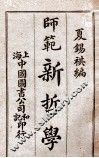 夏錫祺編
師範新哲學
上海中國圖書公司和記印行